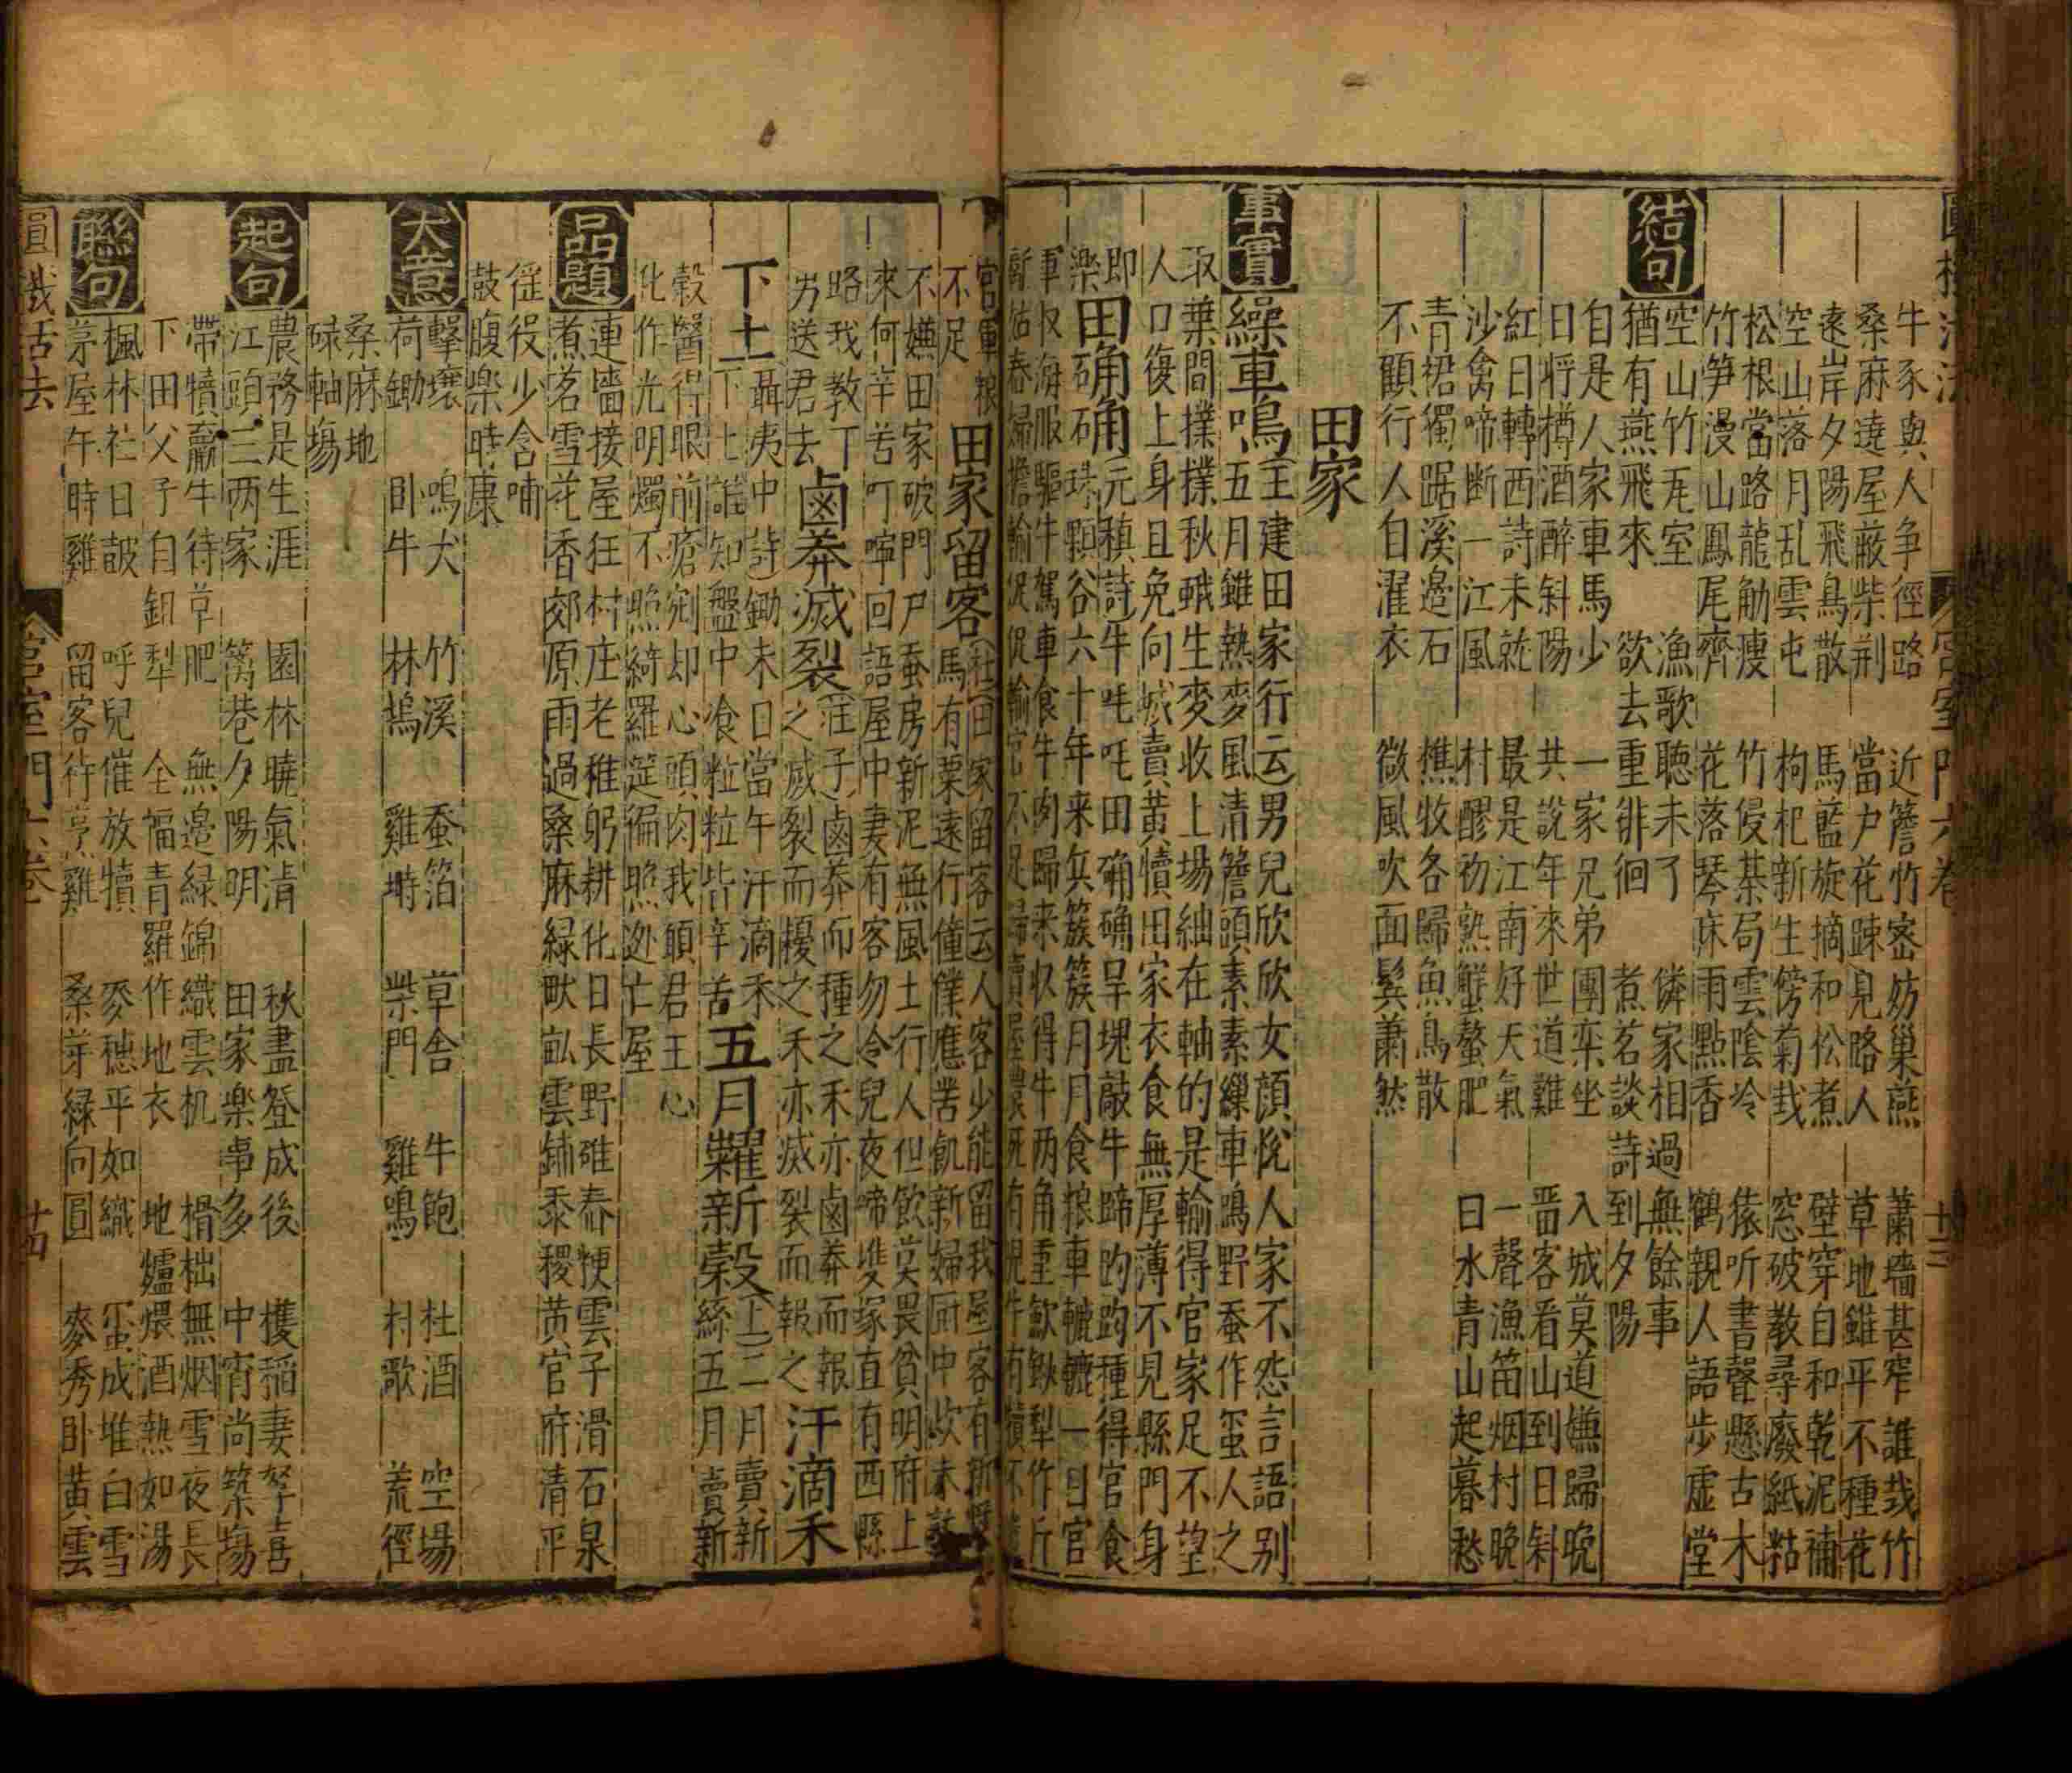 圓機活法 宮室門六卷 十三
牛豕與人争徑路 近簷竹宻妨巢燕 蕭墻甚窄誰栽竹
桑麻遶屋蔽柴荆 當户花踈見路人 草地雖平不種花
遠岸夕陽飛鳥散 馬藍旋摘和松煮 壁穿自和乾泥補
空山落月乱雲屯 枸杞新生傍菊栽 窓破教尋廢紙粘
松根當路龍觔瘦 竹侵棊局雲陰冷 猿听書聲懸古木
竹笋漫山鳳尾齊 花落琴床雨點香 鶴親人語步虚堂
結句
空山竹瓦室 漁歌聴未了 隣家相過無餘事
猶有燕飛來 欲去重徘徊 煮茗談詩到夕陽
自是人家車馬少 一家兄弟團栾坐 入城莫道嫌歸晩
日将樽酒醉斜陽 共說年來世道難 畱客看山到日斜
紅日轉西詩未就 最是江南好天氣 一聲漁笛烟村晩
沙禽啼断一江風 村醪初熟蟹螯肥 日水青山起暮愁
青裙獨踞溪邉石 樵牧各歸魚鳥散
不顧行人自濯衣 微風吹面鬓蕭然
田家
事實
繰車鳴
王建田家行云男兒欣欣女顔悅人家不怨言語别
五月雖熱麥風清簷頭素素繅車鳴野蚕作蛋人之
取葉間撲撲秋蛾生麥收上場紬在軸的是輸得官家足不望
人口復上身且免向城賣黄犢田家衣食無厚薄不見縣門身
即樂
田确确
元稹詩牛吒吒田确确旱塊敲牛蹄趵趵種得官食
硞硞珠顆谷六十年来兵簇簇月月食粮車轆轆一日官
軍収海服驅牛駕車食牛肉歸来収得牛两角重鍁鍬犁作斤
斸姑舂婦擔輸促促輸官不足歸賣屋農死有児牛有犢不遣
官軍粮不足
田家留客
杜田家留客云人客少能留我屋客有新漿
馬有粟遠行僮僕應苦飢新婦厨中炊未熟
不嫌田家破門户蚕房新泥無風土行人但飲莫畏貧明府上
来何辛苦叮嚀回語屋中妻有客勿令兒夜啼雙塚直有西縣
路我教丁男送君去
鹵莽滅裂
庄子鹵莽而種之禾亦鹵莽而報
之㓕裂而櫌之禾亦㓕裂而報之
汗滴禾下土
聶夷中詩鋤禾日當午汗滴禾
下土誰知盤中飡粒粒皆辛苦
五月糶新穀
上二月賣新
絲五月賣新
穀醫得眼前瘡剜却心頭肉我頋君王心
化作光明燭不照綺羅筵徧照逃亡屋
品題
連墻接屋狂村庄老稚躬耕化日長野碓舂粳雲子滑石泉
煮茗雪花香郊原雨過桑麻緑畎畝雲鋪黍稷黄官府清平
徭役少含哺
鼓腹樂時康
大意
擊壤 鳴犬 竹溪 蚕箔 草舎 牛飽 杜酒 空場
荷鋤 卧牛 林塢 雞塒 柴門 雞鳴 村歌 荒徑
桑麻地
碌軸塲
起句
農務是生涯 園林曉氣清 秋盡登成後 擭稲妻孥喜
江頭三两家 篱巷夕陽明 田家樂事多 中宵尚築塲
帶犢羸牛待草肥 無邉緑錦織雲机 榾柮無烟雪夜長
下田父子自鉏犁 全福青羅作地衣 地爐煨酒熱如湯
聯句
楓林社日鼓 呼兒催放犢 麥穂平如織 蛋成堆白雪
茅屋午時雞 留客待烹雞 桑芽緑向圓 麥秀卧黄雲
圓機活法 宮室門六卷 十四